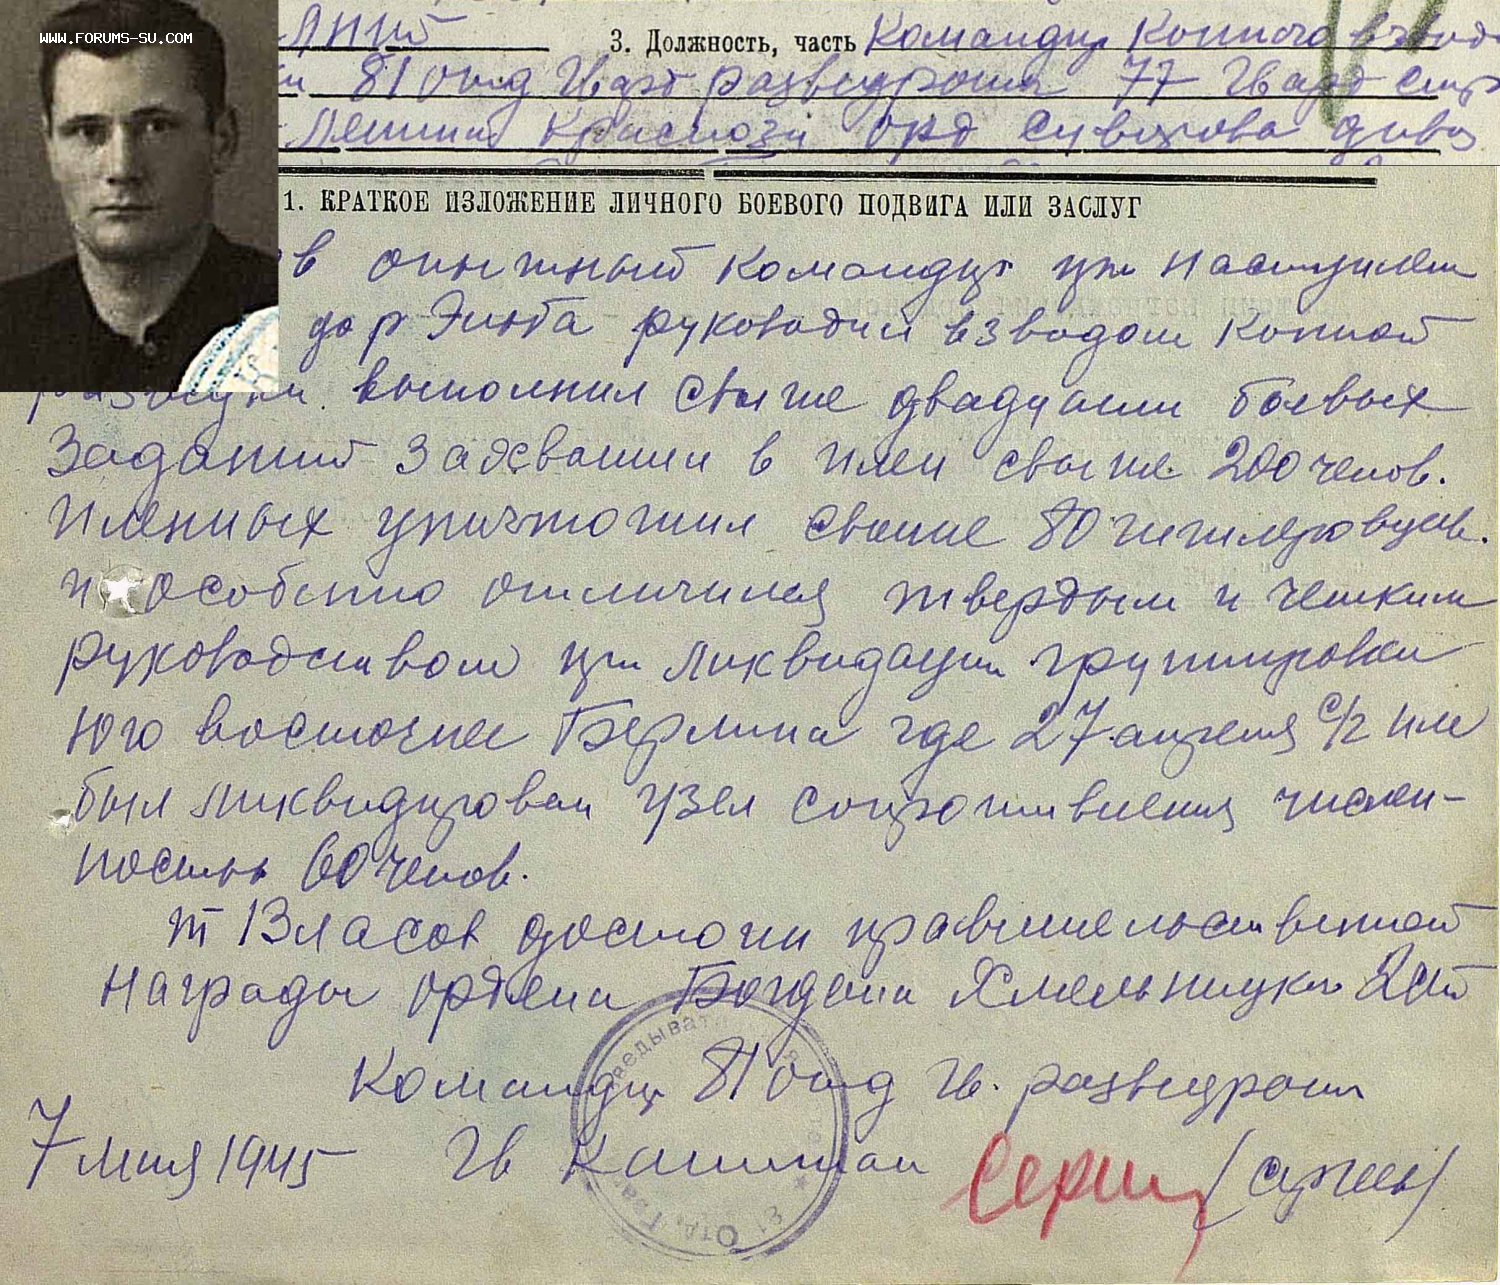 WWW.FORUMS-SU.COM
3. Должность, часть Командир Конного взвода
81 отд Гвард разведроты 77 Гвард стр
Ленина Краснозн орд Суворова дивиз
1. КРАТКОЕ ИЗЛОЖЕНИЕ ЛИЧНОГО БОЕВОГО ПОДВИГА ИЛИ ЗАСЛУГ
опытный командир при наступлен
до р Эльба руководил взводом конной
разведки выполнил свыше двадцати боевых
Заданий Захватил в плен свыше 200 челов.
пленных уничтожил свыше 80 гитлеровцев.
и особенно отличился твердым и четким
руководством при ликвидации группировки
юго восточнее Берлина где 27 апреля с/г им
был ликвидирован узел сопротивления числен-
ностью 60 челов.
т Власов достоин правительственной
Награды ордена Богдана Хмельницки 2 ст
Командир 81 отд Гв. разведроты
7 мая 1945 Гв Капитан